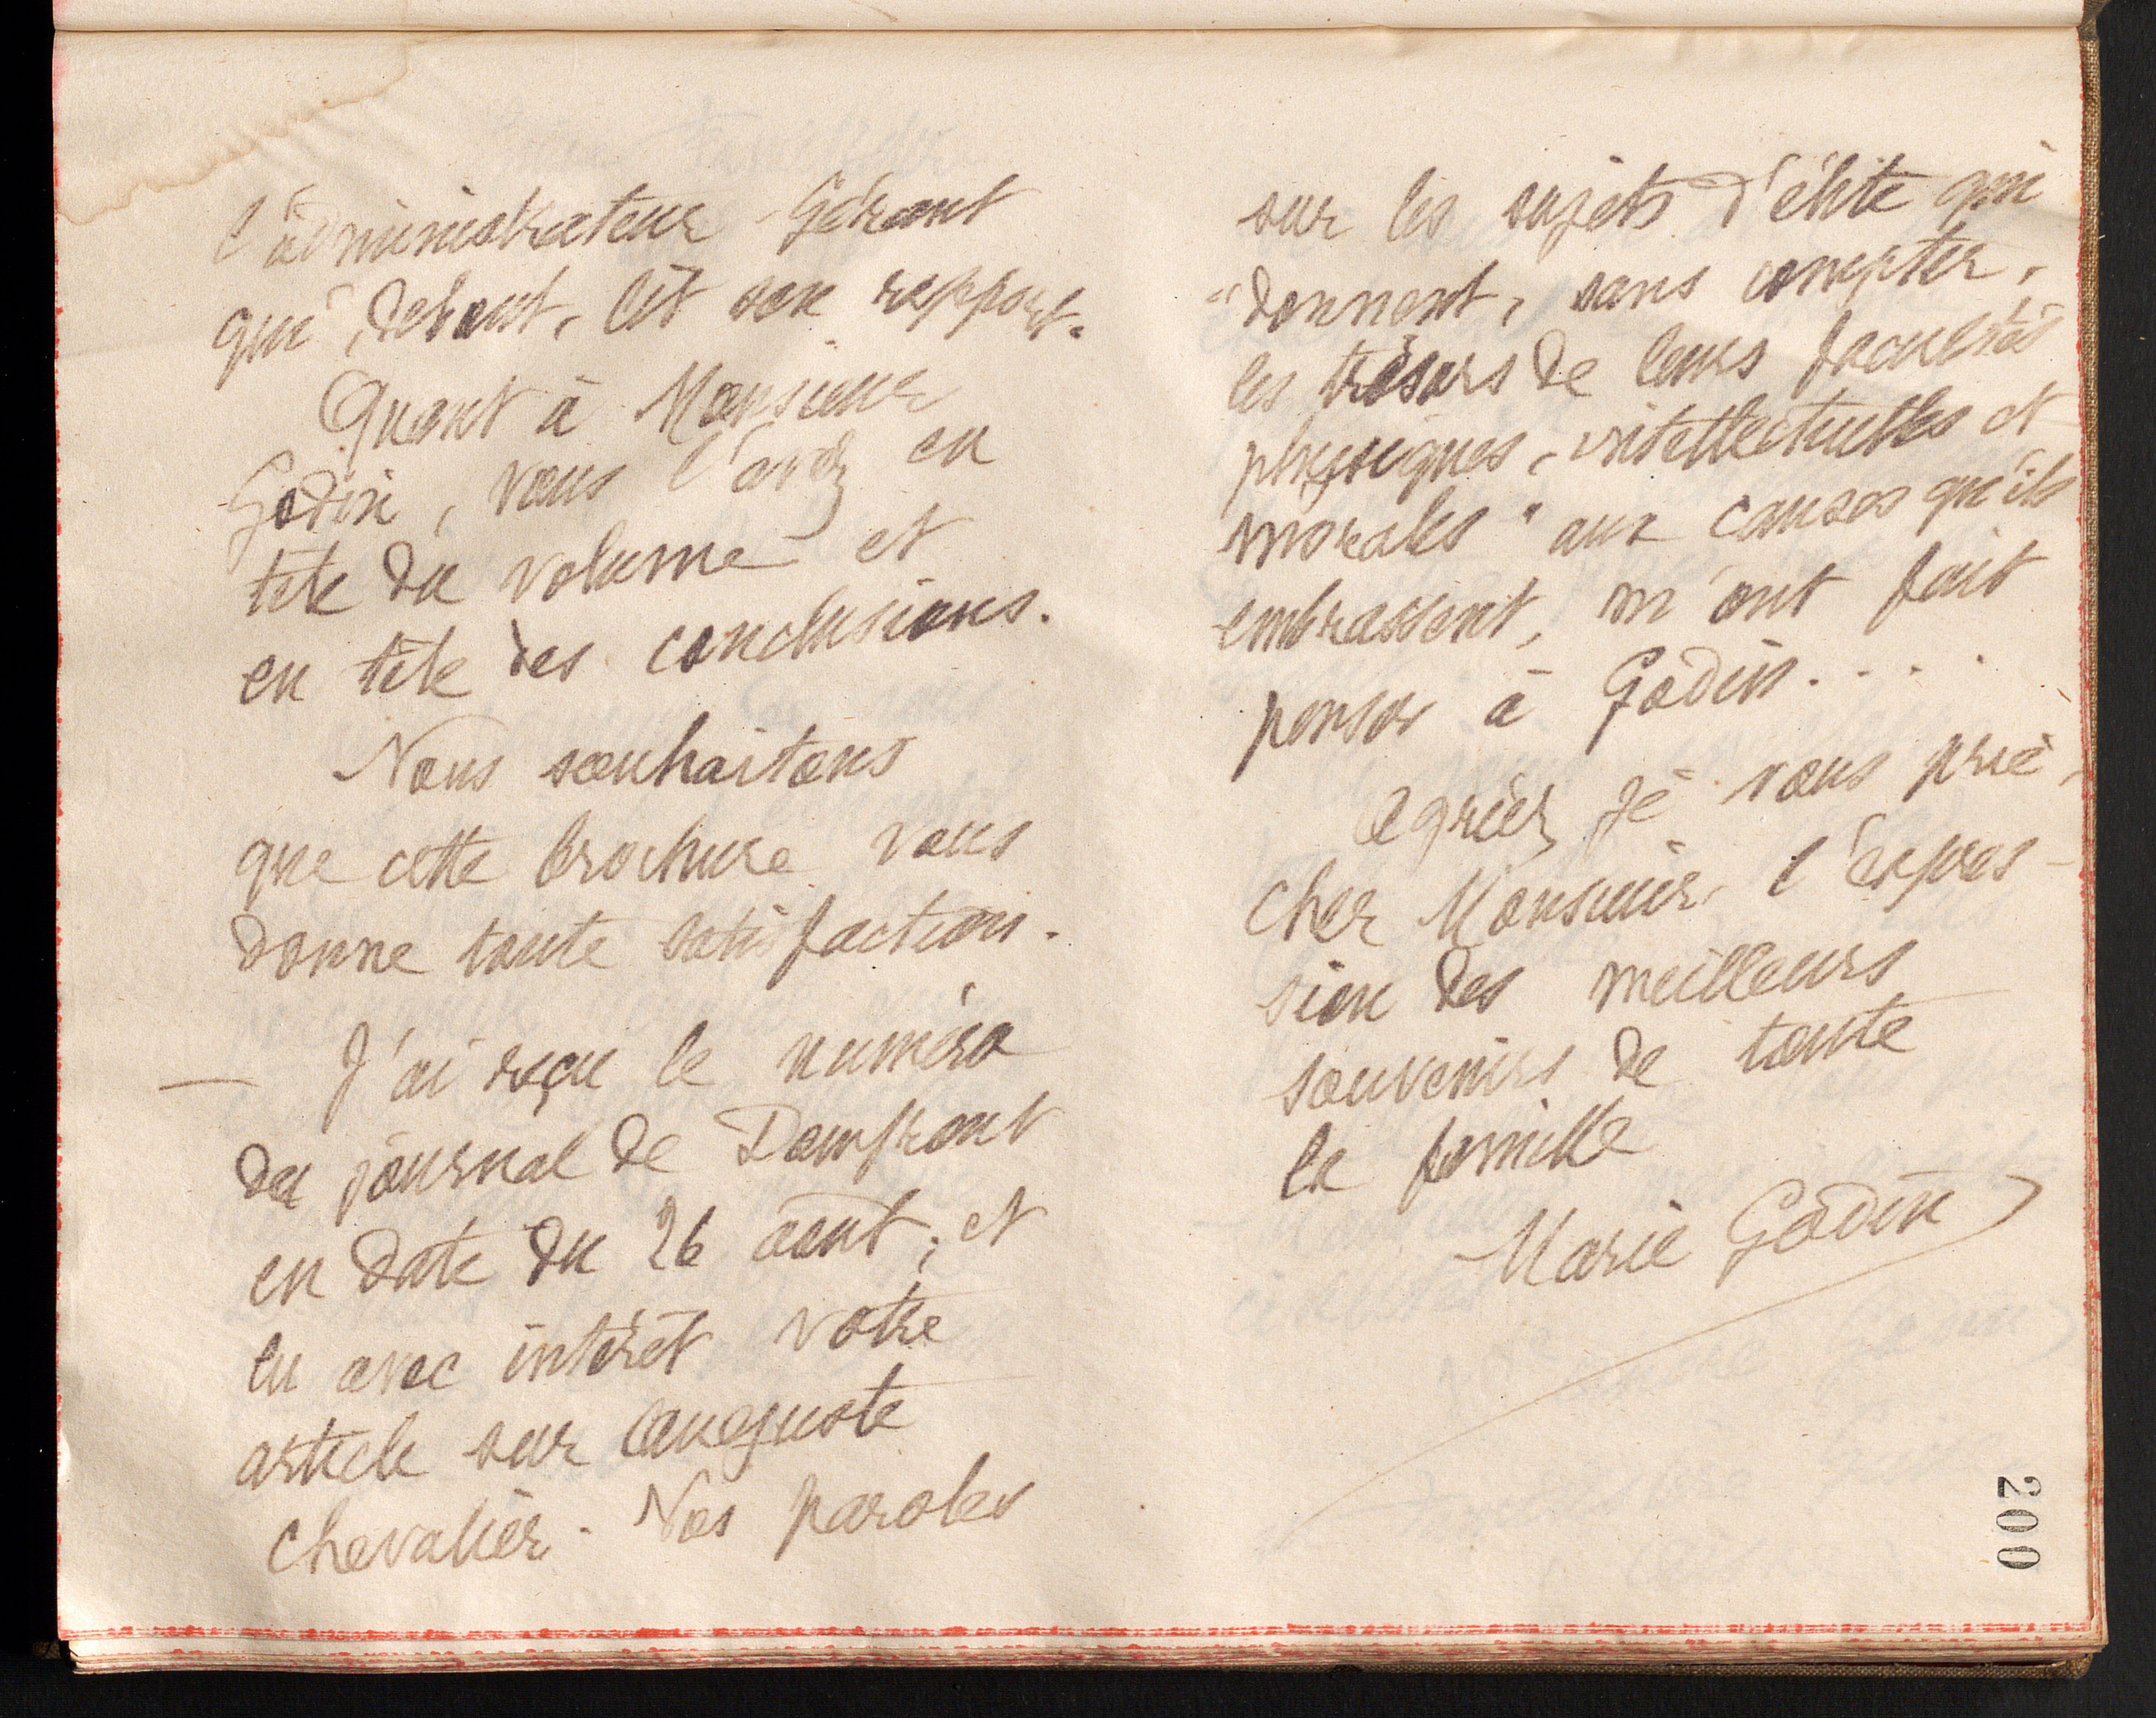 l'administrateur-Gérant
qui, debout, lit son rapport.
Quant à Monsieur
Godin, vous l'avez en
tête du volume et
en tête des conclusions.
Nous souhaitons
que cette brochure vous
donne toute satisfaction.
— J'ai reçu le numéro
du journal de Domfront
en date du 26 août, et
lu avec intérêt votre
article sur Auguste
Chevalier. Vos paroles
sur les sujets d'élite qui
"donnent, sans compter,
les trésors de leurs facultés
physiques, intellectuelles et
morales" aux causes qu'ils
embrassent, m'ont fait
penser à Godin....
Agréez, je vous prie,
cher Monsieur, l'expres-
sion des meilleurs
souvenirs de toute
la famille
Marie Godin
200